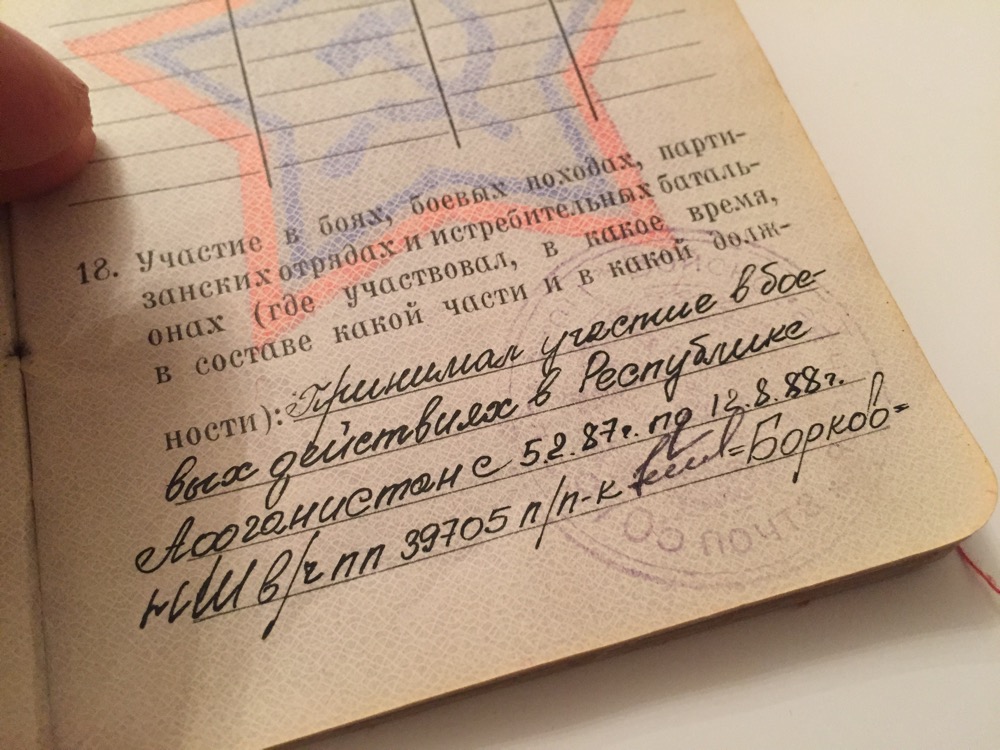 18. Участие в боях, боевых походах, парти-
занских отрядах и истребительных баталь-
онах (где участвовал, в какое время,
в составе какой части и в какой долж-
ности): Принимал участие в бое-
вых действиях в Республике
Афганистан с 5.2.87г. по 12.8.88г.
НШ в/ч пп 39705 п/п-к =Борков=
ПОЧТА